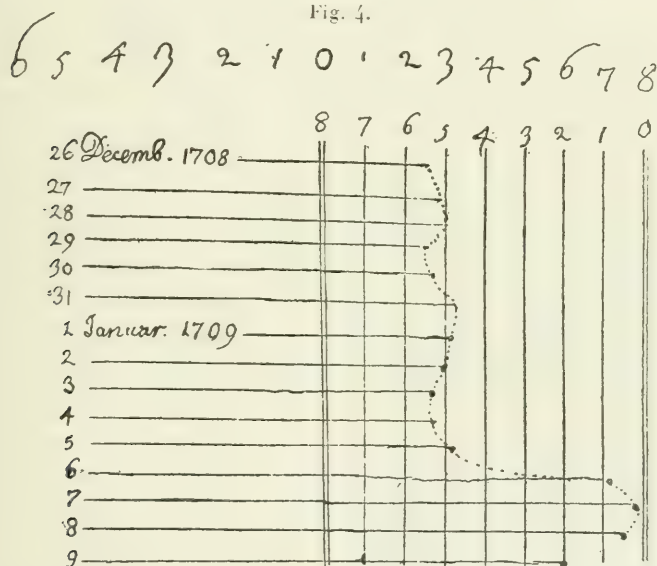 Fig. 4.
6 5 4 3 2 1 0 1 2 3 4 5 6 7 8
8 7 6 5 4 3 2 1 0
26 Decemb. 1708
27
28
29
30
31
1 Januar. 1709
2
3
4
5
6
7
8
9